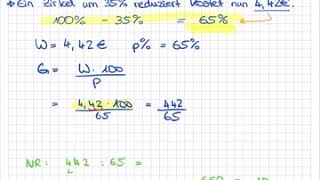 Ein Zirkel um 35% reduziert kostet nun 4,42€.
100% - 35% = 65%
W = 4,42€ p% = 65%
G = W · 100 / P
= 4,42 · 100 / 65 = 442 / 65
NR: 442 : 65 =